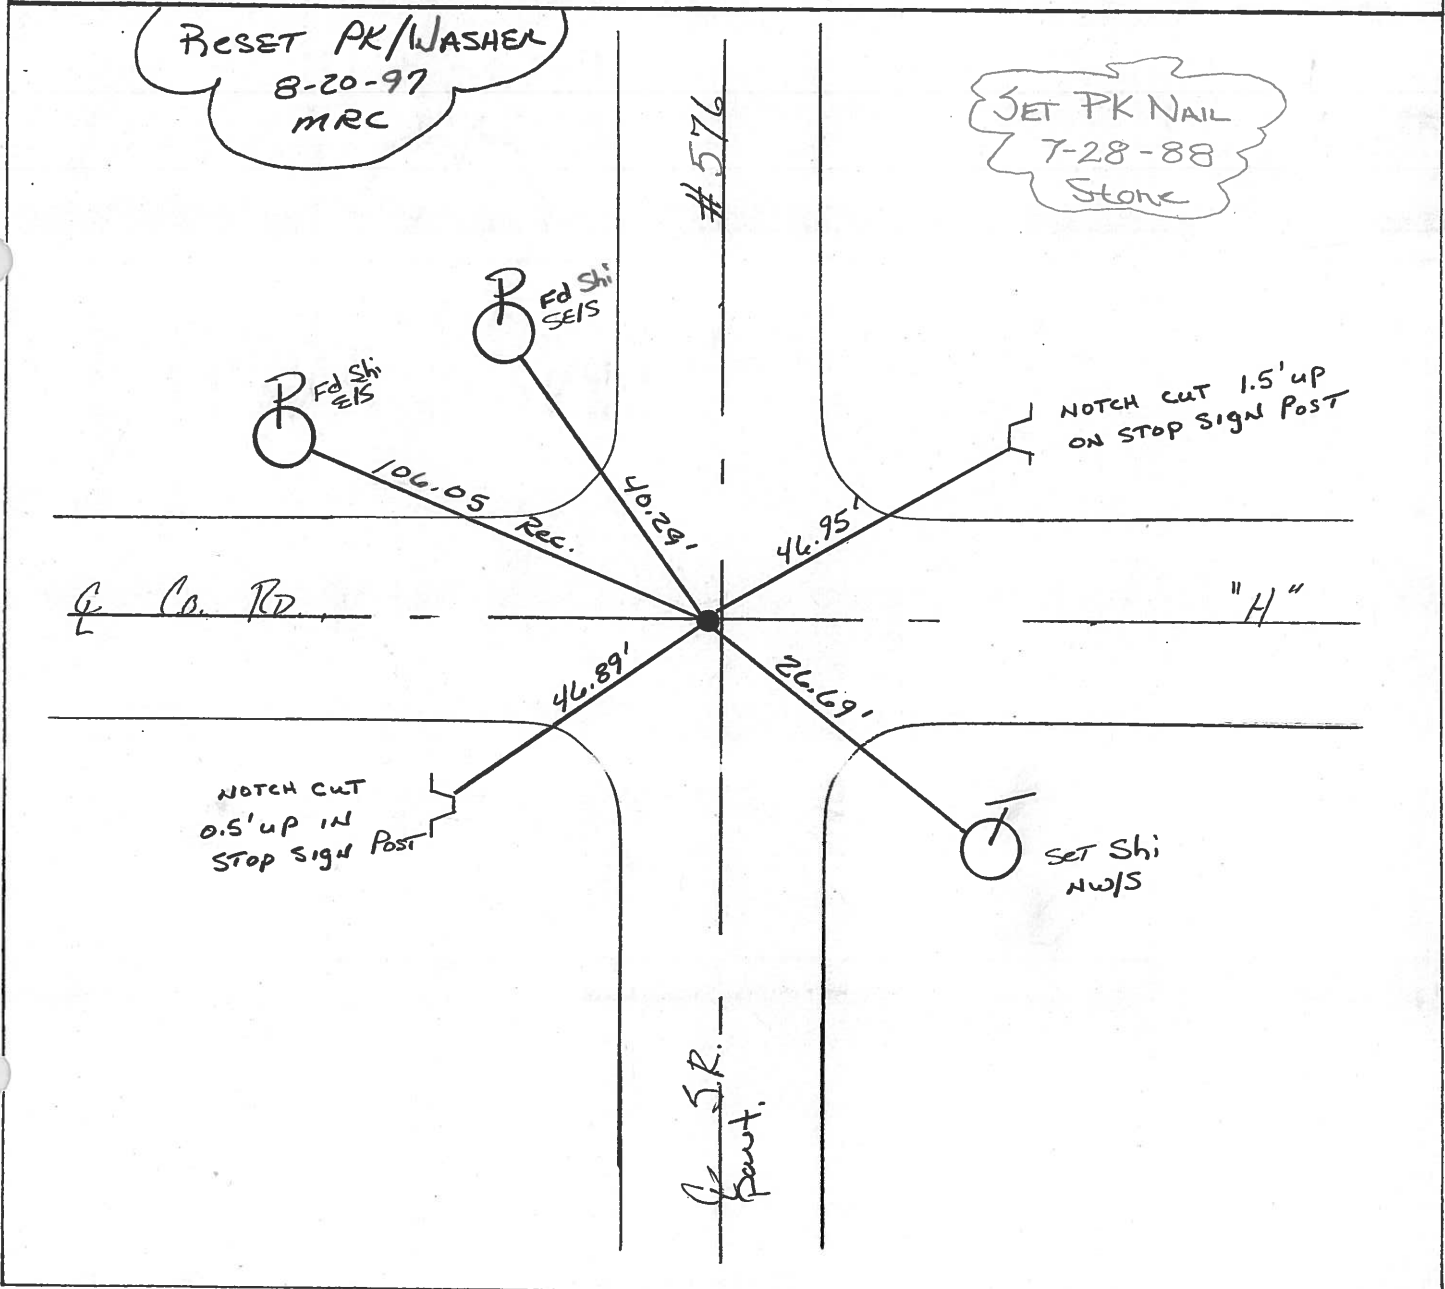 RESET PK/WASHER
8-20-97
MRC
SET PK NAIL
7-28-88
Stone
#576
P
Fd Shi
SE/S
P
Fd Shi
E/S
NOTCH CUT 1.5' UP
ON STOP SIGN POST
106.05 Rec.
40.29'
46.95'
℄ Co. RD.
"H"
46.89'
26.69'
NOTCH CUT
0.5' UP IN
STOP SIGN POST
T
SET Shi
NW/S
℄ S.R.
Pavt.